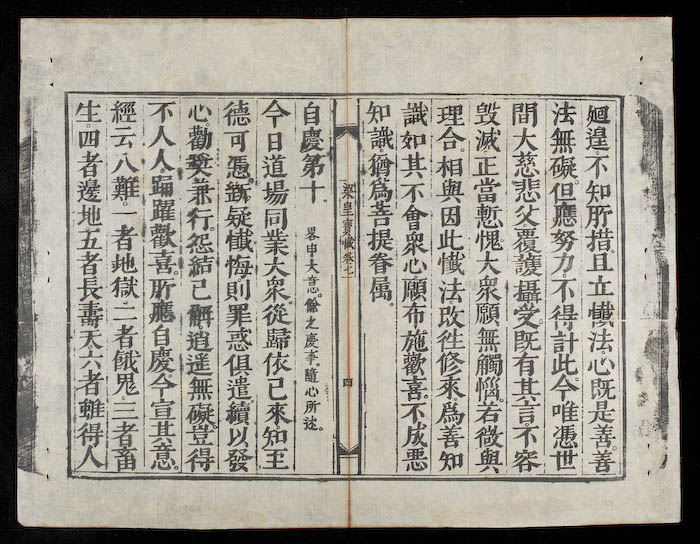 廻遑。不知所措且立懺法。心既是善。善
法無礙。但應努力。不得計此。今唯憑世
間大慈悲父。覆護攝受。既有其言。不容
毀滅。正當慙愧大衆。願無觸惱。若微與
理合。相與因此懺法。改徃修來。爲善知
識。如其不會衆心。願布施歡喜。不成惡
知識。猶爲菩提眷属。
梁皇寶懺卷七
四
自慶第十。畧申大意。餘之慶事。隨心所述。
今日道場同業大衆。從歸依已來。知至
德可憑。斷疑懺悔。則罪惑俱遣。續以發
心勸奬兼行。怨結已解。逍遥無礙。豈得
不人人踊躍歡喜。所應自慶。今宣其意。
經云八難。一者地獄。二者餓鬼。三者畜
生。四者邊地。五者長壽天。六者雖得人